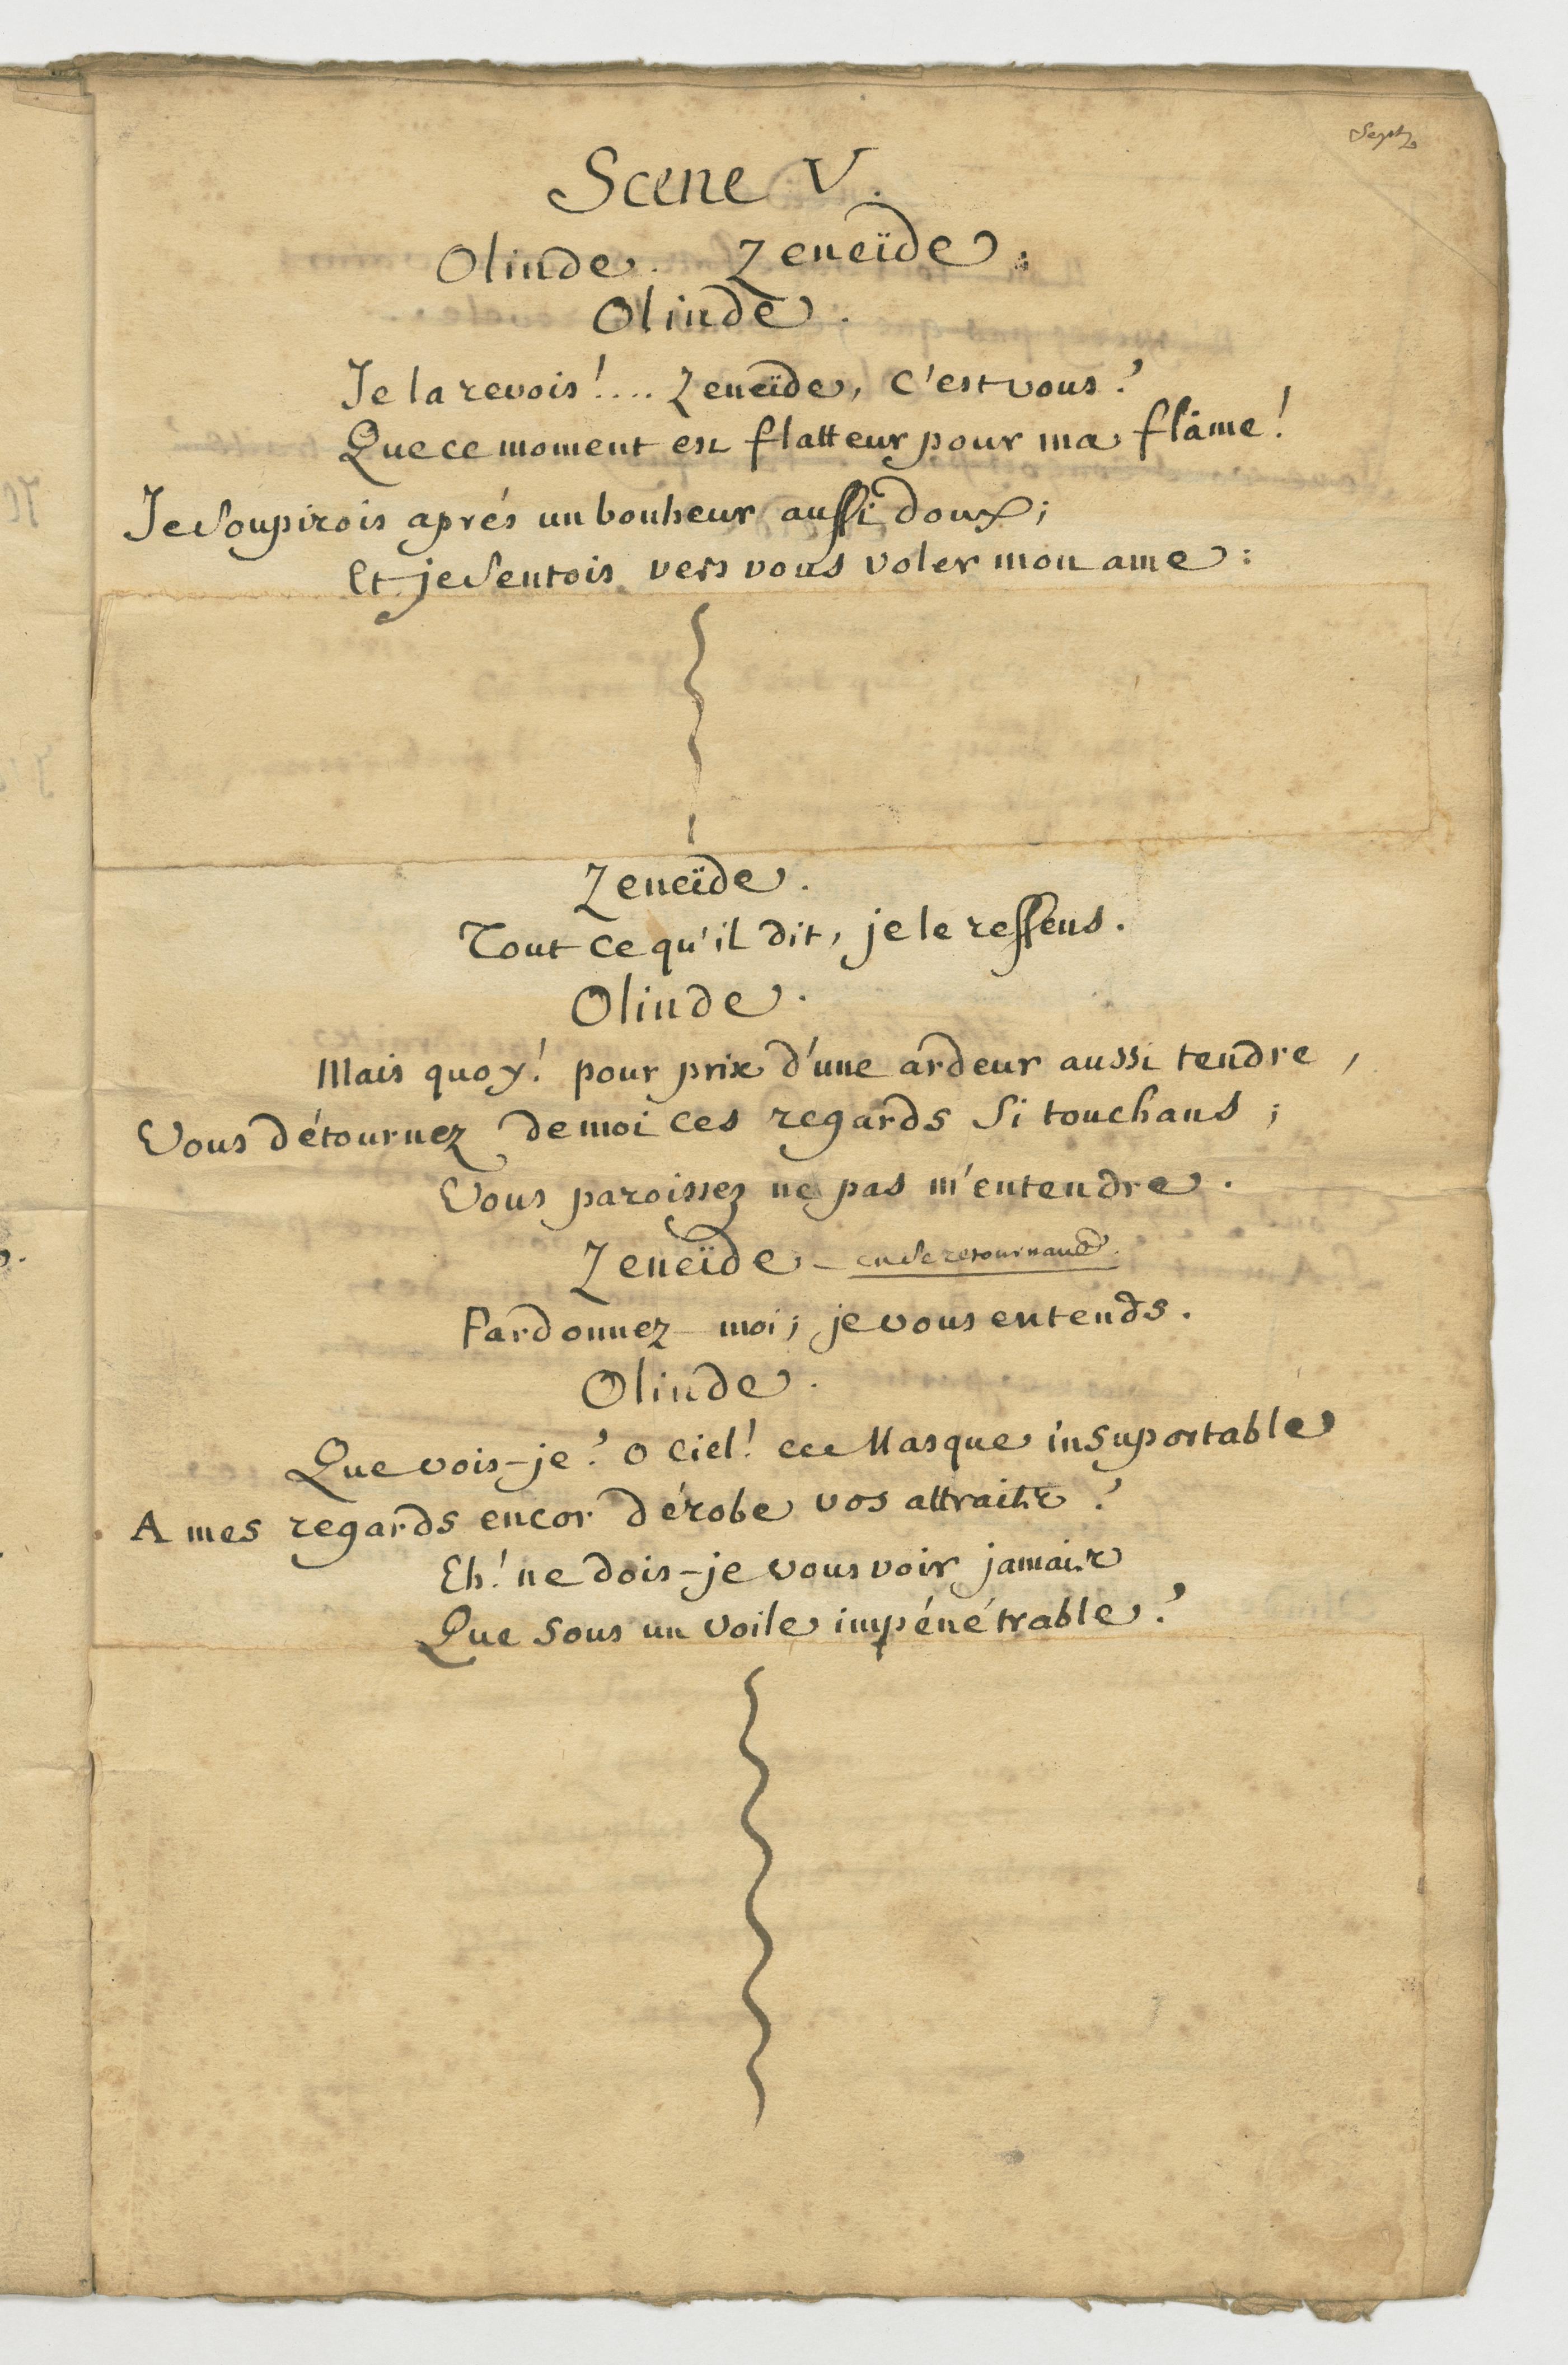 Sept
Scene V.
Olinde. Zeneïde.
Olinde.
Je la revois!.... Zeneïde, c'est vous?
Que ce moment est flatteur pour ma flâme!
Je soupirois aprés un bonheur aussi doux;
Et je sentois vers vous voler mon ame:
Zeneïde.
Tout ce qu'il dit, je le ressens.
Olinde.
Mais quoy! pour prix d'une ardeur aussi tendre,
Vous détournez de moi ces regards si touchans;
Vous paroissez ne pas m'entendre.
Zeneïde - en se retournant.
Pardonnez-moi; je vous entends.
Olinde.
Que vois-je? o Ciel! ce Masque insuportable
A mes regards encor dérobe vos attraits?
Eh! ne dois-je vous voir jamais
Que sous un voile impénétrable?